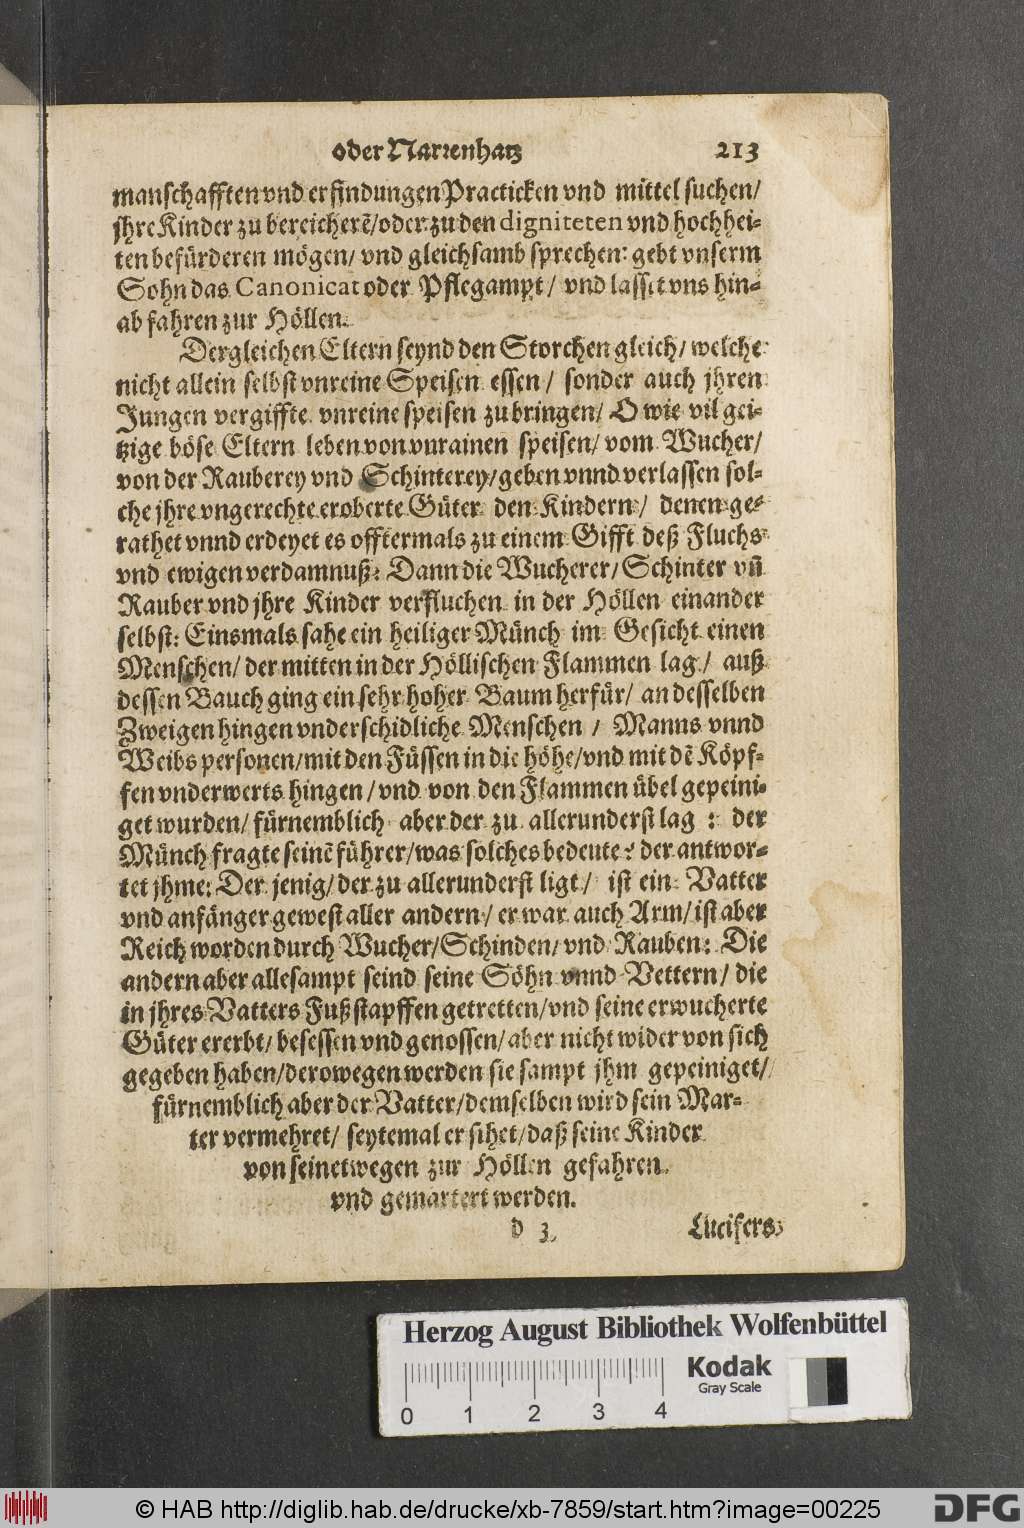 oder Narrenhatz 213
manschafften vnd erfindungen Practicken vnd mittel suchen/
jhre Kinder zu bereicherẽ/oder zu den digniteten vnd hochhei-
ten befürderen mögen/ vnd gleichsamb sprechen: gebt vnserm
Sohn das Canonicat oder Pflegampt/ vnd lasset vns hin-
ab fahren zur Höllen.
Dergleichen Eltern seynd den Storchen gleich/ welche
nicht allein selbst vnreine Speisen essen/ sonder auch jhren
Jungen vergiffte vnreine speisen zubringen/ O wie vil gei-
tzige böse Eltern leben von vnrainen speisen/ vom Wucher/
von der Rauberey vnd Schinterey/geben vnnd verlassen sol-
che jhre vngerechte eroberte Güter den Kindern/ denen ge-
rathet vnnd erdeyet es offtermals zu einem Gifft deß Fluchs
vnd ewigen verdamnuß: Dann die Wucherer/ Schinter vñ
Rauber vnd jhre Kinder verfluchen in der Höllen einander
selbst: Einsmals sahe ein heiliger Münch im Gesicht einen
Menschen/ der mitten in der Höllischen Flammen lag/ auß
dessen Bauch ging ein sehr hoher Baum herfür/ an desselben
Zweigen hingen vnderschidliche Menschen/ Manns vnnd
Weibs personen/mit den Füssen in die höhe/vnd mit dẽ Köpf-
fen vnderwerts hingen/vnd von den Flammen übel gepeini-
get wurden/ fürnemblich aber der zu allerunderst lag: der
Münch fragte seinẽ führer/was solches bedeute? der antwor-
tet jhme: Der jenig/ der zu allerunderst ligt/ ist ein Vatter
vnd anfänger gewest aller andern/ er war auch Arm/ ist aber
Reich worden durch Wucher/Schinden/ vnd Rauben: Die
andern aber allesampt seind seine Söhn vnnd Vettern/ die
in jhres Vatters Fußstapffen getretten/vnd seine erwucherte
Güter ererbt/ besessen vnd genossen/ aber nicht wider von sich
gegeben haben/derowegen werden sie sampt jhm gepeiniget/
fürnemblich aber der Vatter/demselben wird sein Mar-
ter vermehret/ seytemal er sihet/daß seine Kinder
von seinetwegen zur Höllen gefahren
vnd gemartert werden.
d 3 Lucifers
Herzog August Bibliothek Wolfenbüttel
Kodak
Gray Scale
0 1 2 3 4
© HAB http://diglib.hab.de/drucke/xb-7859/start.htm?image=00225
DFG